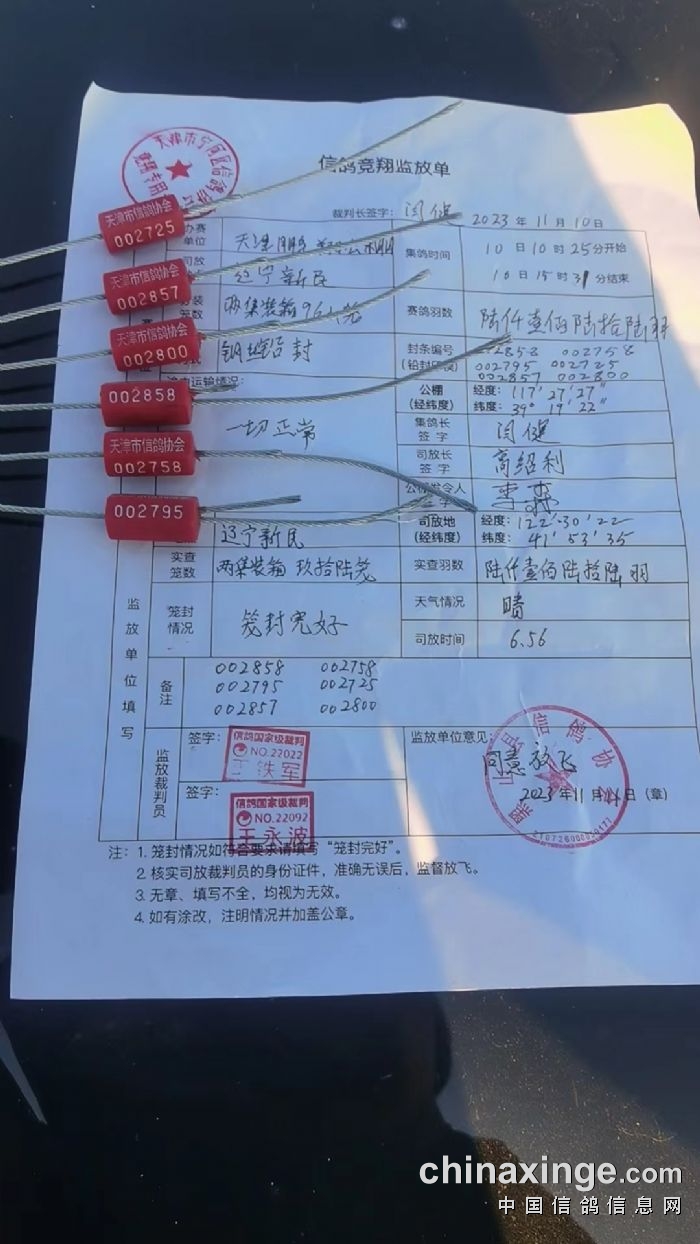 信鸽竞翔监放单
裁判长签字：闫健 2023年11月10日
天津市信鸽协会
002725
天津市信鸽协会
002857
天津市信鸽协会
002800
002858
天津市信鸽协会
002758
002795
办赛单位 天津 集鸽时间 10日10时25分开始
10日15时31分结束
司放 辽宁新民
笼数 两集装箱96笼 赛鸽羽数 陆仟壹佰陆拾陆羽
钢丝铅封 封条编号 002858 002758
002795 002725
002857 002800
运输情况：
一切正常
公棚(经纬度) 经度：117°27'27"
纬度：39°19'22"
集鸽长签字 闫健
司放长签字 高绍利
公棚发令人
辽宁新民 司放地(经纬度) 经度：122°30'22
纬度：41°53'35
实查笼数 两集装箱 玖拾陆笼 实查羽数 陆仟壹佰陆拾陆羽
监放单位填写
笼封情况 笼封完好 天气情况 晴
司放时间 6.56
备注 002858 002758
002795 002725
002857 002800
监放裁判员
签字：信鸽国家级裁判
NO.22022
王铁军
签字：
信鸽国家级裁判
NO.22092
王永波
监放单位意见：
同意放飞
2023年11月11日（章）
注：1. 笼封情况如符合要求请填写“笼封完好”。
2. 核实司放裁判员的身份证件，准确无误后，监督放飞。
3. 无章、填写不全，均视为无效。
4. 如有涂改，注明情况并加盖公章。
chinaxinge.com
中国信鸽信息网